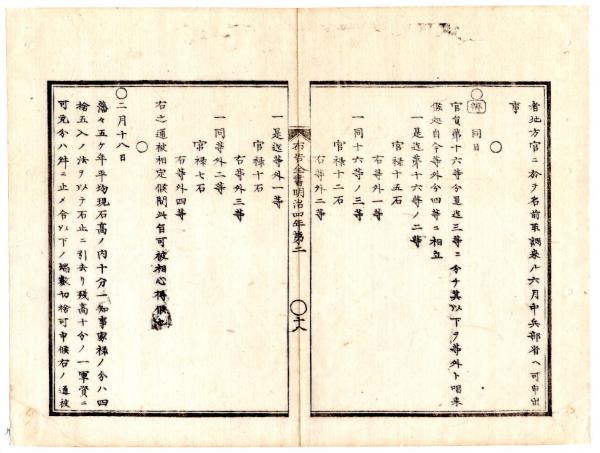 者地方官ニ於テ名前取調来ル六月中兵部省ヘ可申出
事
○ 同日 ○
官員第十六等今迄三等ニ分チ其以下ヲ等外ト唱来
候処自今等外分四等ニ相立
一是迄第十六等ノ二等
官禄十五石
右等外一等
一同十六等ノ三等
官禄十二石
右等外二等
布告全書明治四年第二 ○十八
一是迄等外一等
官禄十石
右等外三等
一同等外二等
官禄七石
右等外四等
右之通被相定候間此旨可被相心得候也
○二月十八日 ○
藩々五ケ年平均現石高ノ内十分一知事家禄ノ分ハ四
捨五入ノ法ヲ以テ石止ニ引去リ残高十分ノ一軍資ニ
可充分ハ舛ニ止メ合以下ノ端数切捨可申候右ノ通被